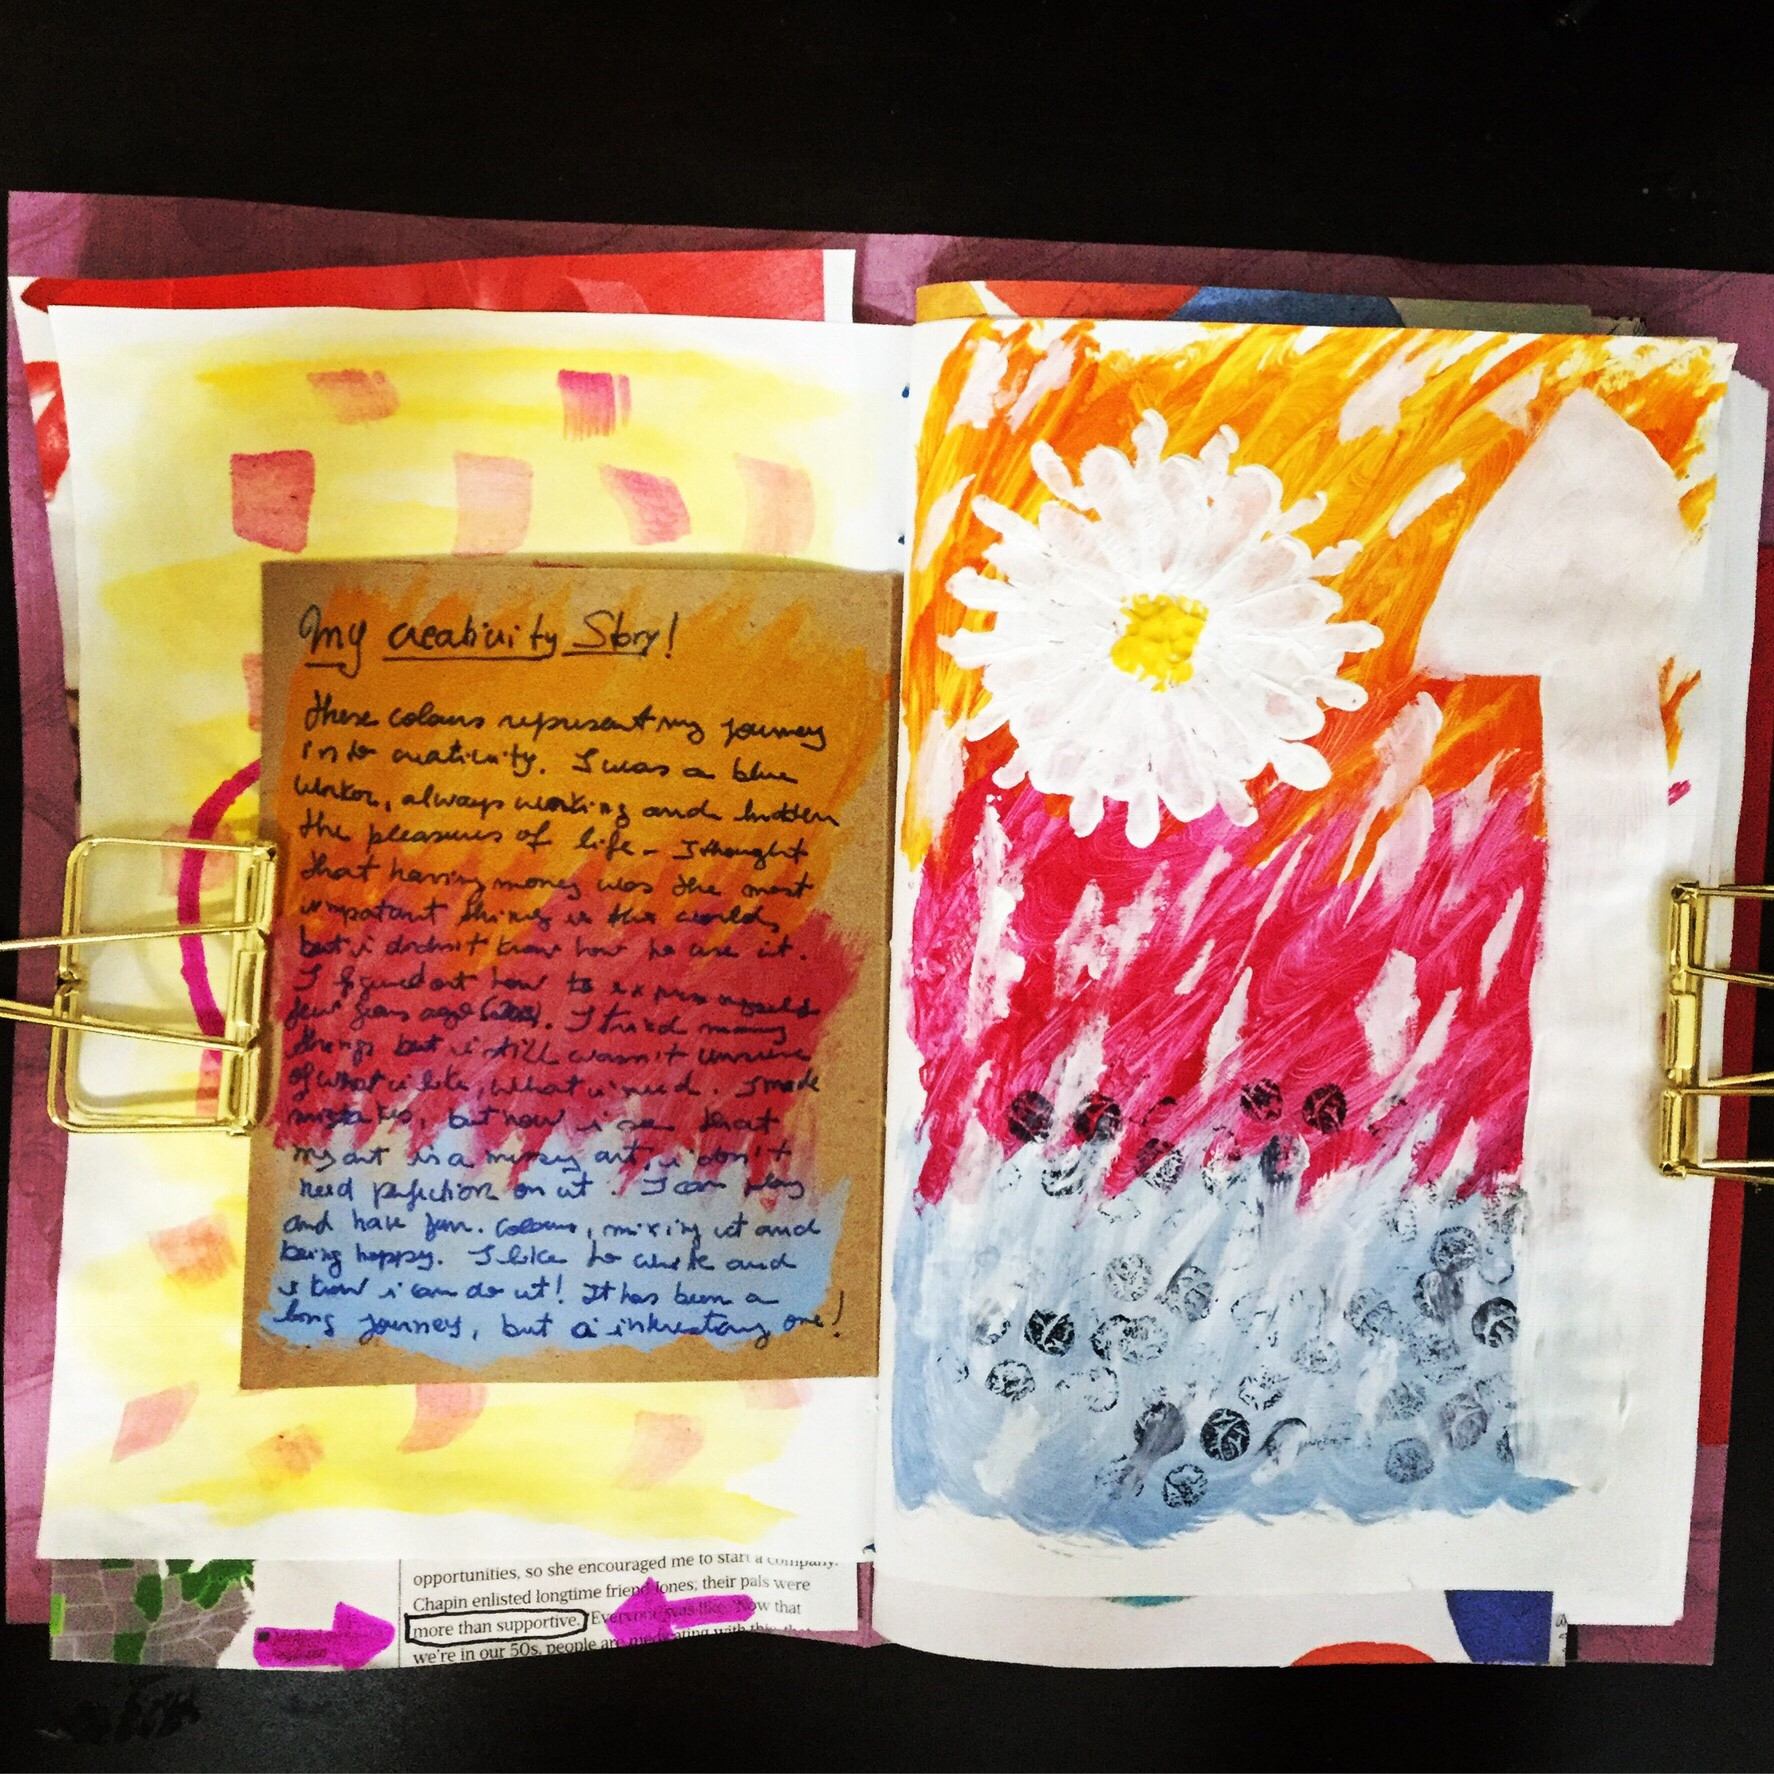 My creativity Story!
These colours represent my journey
into creativity. I was a blue
worker, always working and hidden
the pleasures of life - I thought
that having money was the most
important thing in the world,
but i didn't know how to use it.
I figured out how to express myself
few years ago. I tried many
things but i still wasn't
of what i like, what i need. I made
mistakes, but now i see that
my art is a messy art, i don't
need perfection on it. I can play
and have fun. Colours, mixing it and
being happy. I like to write and
i know i can do it! It has been a
long journey, but a interesting one!
opportunities, so she encouraged me to start a company.
Chapin enlisted longtime friend Jones; their pals were
more than supportive. Everyone was like, 'Now that
we're in our 50s, people are